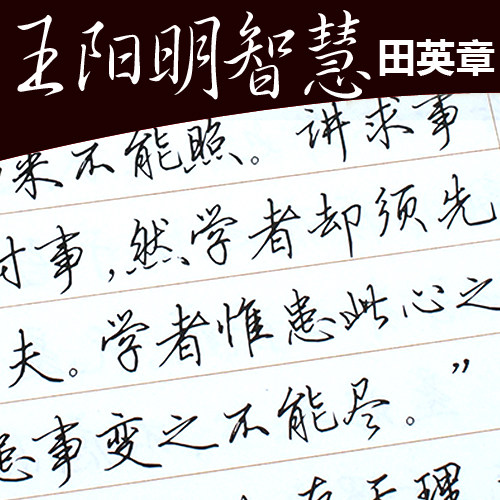 王阳明智慧 田英章
来不能照。讲求事
时事,然学者却须先
夫。学者惟患此心之
患事变之不能尽。”